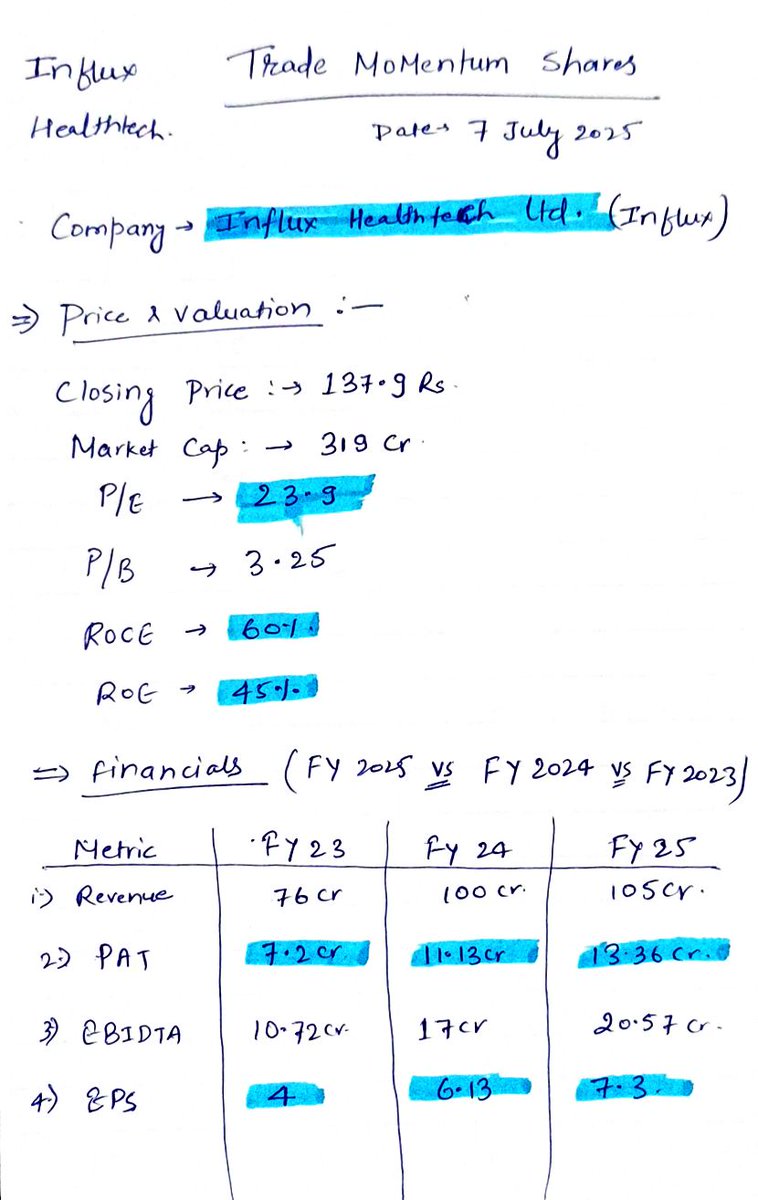 Influx Trade MoMentum Shares
Healthtech. Date→ 7 July 2025
Company → Influx Healthtech Ltd. (Influx)
⇒ Price & Valuation :—
Closing Price :→ 137.9 Rs.
Market Cap : → 319 Cr.
P/E → 23.9
P/B → 3.25
ROCE → 60%.
ROE → 45%.
⇒ Financials (FY 2025 vs FY 2024 vs FY 2023)
Metric FY 23 FY 24 FY 25
1:) Revenue 76 Cr 100 Cr. 105 Cr.
2:) PAT 7.2 Cr. 11.13 Cr 13.36 Cr.
3) EBIDTA 10.72 Cr. 17 Cr 20.57 Cr.
4.) EPS 4 6.13 7.3.